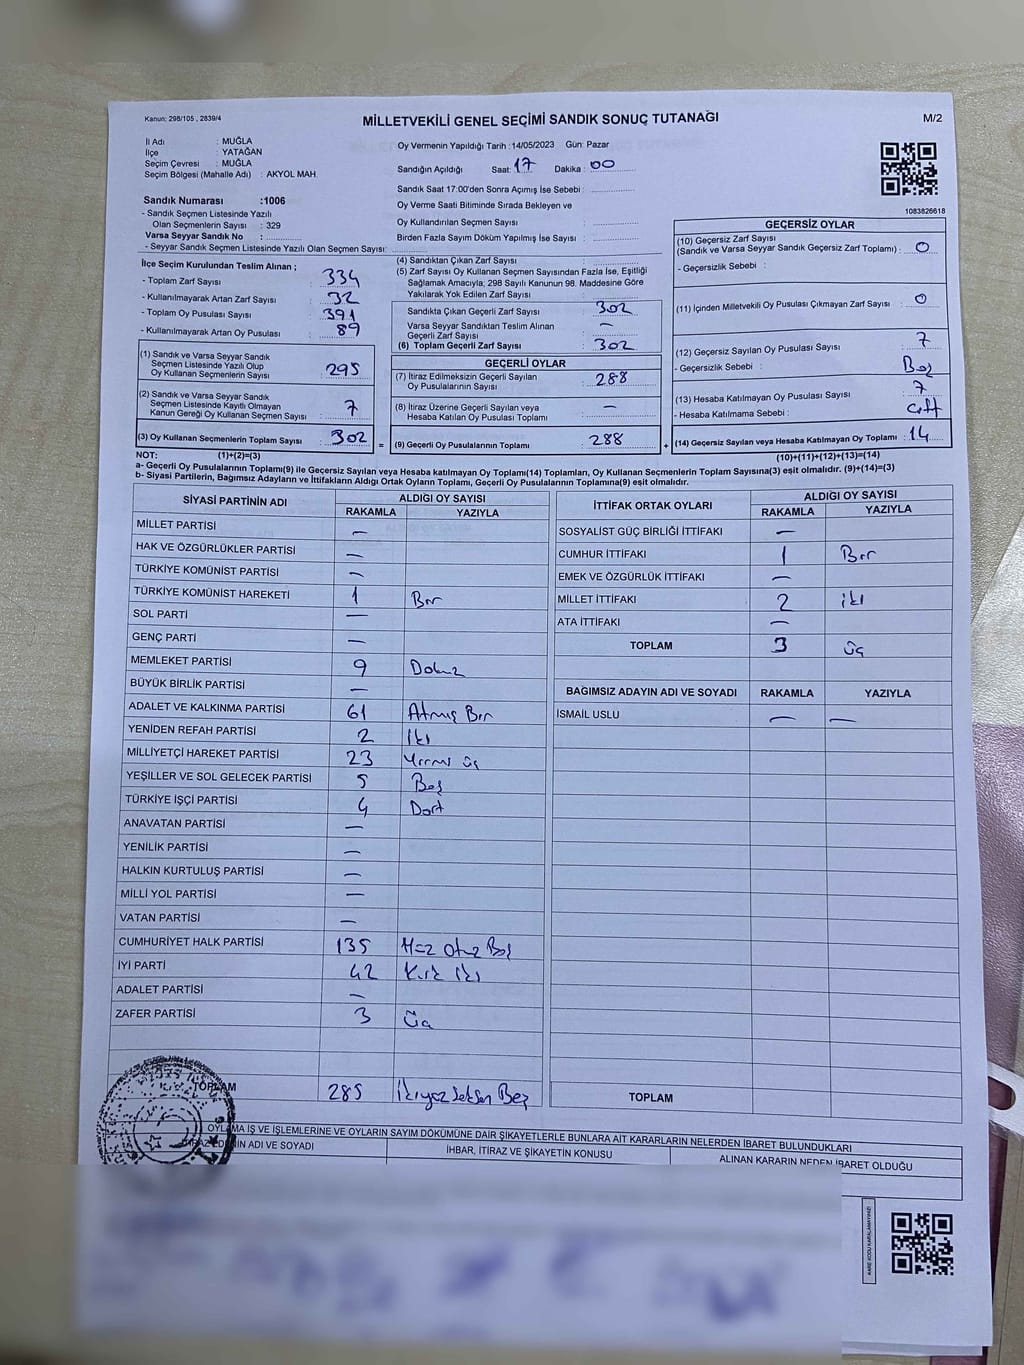 Kanun: 298/105 , 2839/4
MİLLETVEKİLİ GENEL SEÇİMİ SANDIK SONUÇ TUTANAĞI
M/2
İl Adı : MUĞLA
İlçe : YATAĞAN
Seçim Çevresi : MUĞLA
Seçim Bölgesi (Mahalle Adı) : AKYOL MAH.
Oy Vermenin Yapıldığı Tarih :14/05/2023 Gün: Pazar
Sandığın Açıldığı Saat: 17 Dakika : 00
Sandık Saat 17:00'den Sonra Açımış İse Sebebi :
Oy Verme Saati Bitiminde Sırada Bekleyen ve
Oy Kullandırılan Seçmen Sayısı :
Birden Fazla Sayım Döküm Yapılmış İse Sayısı :
1083826618
Sandık Numarası :1006
- Sandık Seçmen Listesinde Yazılı
Olan Seçmenlerin Sayısı : 329
Varsa Seyyar Sandık No :
- Seyyar Sandık Seçmen Listesinde Yazılı Olan Seçmen Sayısı:
İlçe Seçim Kurulundan Teslim Alınan ;
- Toplam Zarf Sayısı : 334
- Kullanılmayarak Artan Zarf Sayısı : 32
- Toplam Oy Pusulası Sayısı : 391
- Kullanılmayarak Artan Oy Pusulası : 89
(1) Sandık ve Varsa Seyyar Sandık
Seçmen Listesinde Yazılı Olup
Oy Kullanan Seçmenlerin Sayısı : 295
(2) Sandık ve Varsa Seyyar Sandık
Seçmen Listesinde Kayıtlı Olmayan
Kanun Gereği Oy Kullanan Seçmen Sayısı : 7
(3) Oy Kullanan Seçmenlerin Toplam Sayısı : 302 =
(4) Sandıktan Çıkan Zarf Sayısı :
(5) Zarf Sayısı Oy Kullanan Seçmen Sayısından Fazla İse, Eşitliği
Sağlamak Amacıyla; 298 Sayılı Kanunun 98. Maddesine Göre
Yakılarak Yok Edilen Zarf Sayısı :
Sandıkta Çıkan Geçerli Zarf Sayısı : 302
Varsa Seyyar Sandıktan Teslim Alınan
Geçerli Zarf Sayısı : —
(6) Toplam Geçerli Zarf Sayısı : 302
GEÇERLİ OYLAR
(7) İtiraz Edilmeksizin Geçerli Sayılan
Oy Pusulalarının Sayısı : 288
(8) İtiraz Üzerine Geçerli Sayılan veya
Hesaba Katılan Oy Pusulası Toplamı : —
(9) Geçerli Oy Pusulalarının Toplamı : 288 +
GEÇERSİZ OYLAR
(10) Geçersiz Zarf Sayısı
(Sandık ve Varsa Seyyar Sandık Geçersiz Zarf Toplamı) : 0
- Geçersizlik Sebebi :
(11) İçinden Milletvekili Oy Pusulası Çıkmayan Zarf Sayısı : 0
(12) Geçersiz Sayılan Oy Pusulası Sayısı : 7
- Geçersizlik Sebebi : Boş
(13) Hesaba Katılmayan Oy Pusulası Sayısı : 7
- Hesaba Katılmama Sebebi : Çift
(14) Geçersiz Sayılan veya Hesaba Katılmayan Oy Toplamı : 14
NOT: (1)+(2)=(3)
(10)+(11)+(12)+(13)=(14)
a- Geçerli Oy Pusulalarının Toplamı(9) ile Geçersiz Sayılan veya Hesaba katılmayan Oy Toplamı(14) Toplamları, Oy Kullanan Seçmenlerin Toplam Sayısına(3) eşit olmalıdır. (9)+(14)=(3)
b- Siyasi Partilerin, Bagımsız Adayların ve İttifakların Aldığı Ortak Oyların Toplamı, Geçerli Oy Pusulalarının Toplamına(9) eşit olmalıdır.
SİYASİ PARTİNİN ADI ALDIĞI OY SAYISI
RAKAMLA YAZIYLA
MİLLET PARTİSİ —
HAK VE ÖZGÜRLÜKLER PARTİSİ —
TÜRKİYE KOMÜNİST PARTİSİ —
TÜRKİYE KOMÜNİST HAREKETİ 1 Bir
SOL PARTİ —
GENÇ PARTİ —
MEMLEKET PARTİSİ 9 Dokuz
BÜYÜK BİRLİK PARTİSİ —
ADALET VE KALKINMA PARTİSİ 61 Atmış Bir
YENİDEN REFAH PARTİSİ 2 İki
MİLLİYETÇİ HAREKET PARTİSİ 23 Yirmi üç
YEŞİLLER VE SOL GELECEK PARTİSİ 5 Beş
TÜRKİYE İŞÇİ PARTİSİ 4 Dört
ANAVATAN PARTİSİ —
YENİLİK PARTİSİ —
HALKIN KURTULUŞ PARTİSİ —
MİLLİ YOL PARTİSİ —
VATAN PARTİSİ —
CUMHURİYET HALK PARTİSİ 135 Yüz Otuz Beş
İYİ PARTİ 42 Kırk İki
ADALET PARTİSİ —
ZAFER PARTİSİ 3 Üç
TOPLAM 285 İkiyüz Seksen Beş
İTTİFAK ORTAK OYLARI ALDIĞI OY SAYISI
RAKAMLA YAZIYLA
SOSYALİST GÜÇ BİRLİĞİ İTTİFAKI —
CUMHUR İTTİFAKI 1 Bir
EMEK VE ÖZGÜRLÜK İTTİFAKI —
MİLLET İTTİFAKI 2 iki
ATA İTTİFAKI —
TOPLAM 3 üç
BAĞIMSIZ ADAYIN ADI VE SOYADI RAKAMLA YAZIYLA
İSMAİL USLU — —
TOPLAM
OYLAMA İŞ VE İŞLEMLERİNE VE OYLARIN SAYIM DÖKÜMÜNE DAİR ŞİKAYETLERLE BUNLARA AİT KARARLARIN NELERDEN İBARET BULUNDUKLARI
İTİRAZ EDENİN ADI VE SOYADI İHBAR, İTİRAZ VE ŞİKAYETİN KONUSU ALINAN KARARIN NEDEN İBARET OLDUĞU
KARE KODU KARALAMAYINIZ!